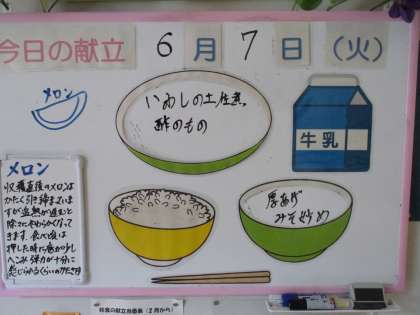 今日の献立 6月7日(火)
メロン
いわしの土佐煮
酢のもの
牛乳
メロン
収穫直後のメロンは
かたく引き締まっていま
すが追熟が進むと
除々にやわらかくなって
きます。食べ頃は
押した時に底が少し
へこみ弾力が十分に
感じられるくらいのかたさです
厚あげ
みそ炒め
給食の献立当番表(2月から)